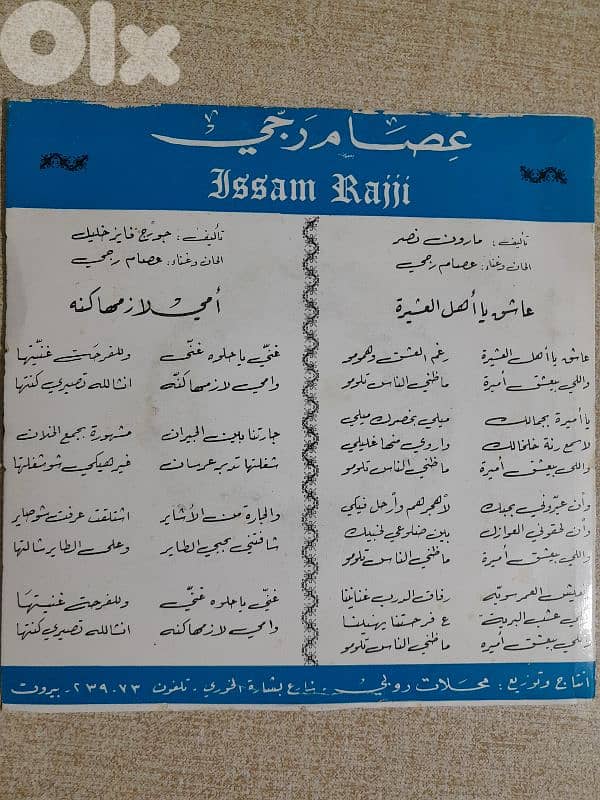 Olx
عصام رجي
Issam Rajji
تأليف: مارون نصر
الحان وغناء: عصام رجي
عاشق يا أهل العشيرة
عاشق يا أهل العشيرة رغم العشق وهمومو
واللي بيعشق أميرة ما ظني الناس تلومو
يا أميرة بجمالك ميلي بخصورك ميلي
لا سمع رنة خلخالك واروي منها غليلي
واللي بيعشق أميرة ما ظني الناس تلومو
وأن عيروني بحبك لأهجرهم وأرحل فيكي
وأن لحقوني العوازل بين ضلوعي لخبيك
واللي بيعشق أميرة ما ظني الناس تلومو
العمر سويه رفاق الدرب غنانينا
عشب البرية ع فرحتنا يهنينا
بيعشق أميرة ما ظني الناس تلومو
تأليف: جورج فايز خليل
الحان وغناء: عصام رجي
أمي لازمها كنه
غنّي يا حلوه غنّي وللفرحة غنّيتها
وامي لازمها كنّه انشالله تصيري كنتها
جارتنا بلين الجيران مشهورة بجمع الخلان
شغلتها تدبر عرسان غير هيكي شو شغلتها
والجارة من الأشاير اشتلقت عرفت شو صاير
شافتني بحبي الطاير وعلى الطاير شالتها
غنّي يا حلوه غنّي وللفرحة غنيتها
وامي لازمها كنه انشالله تصيري كنتها
انتاج وتوزيع: محلات روبي - شارع بشارة الخوري - تلفون ٢٣٩٠٧٣ - بيروت